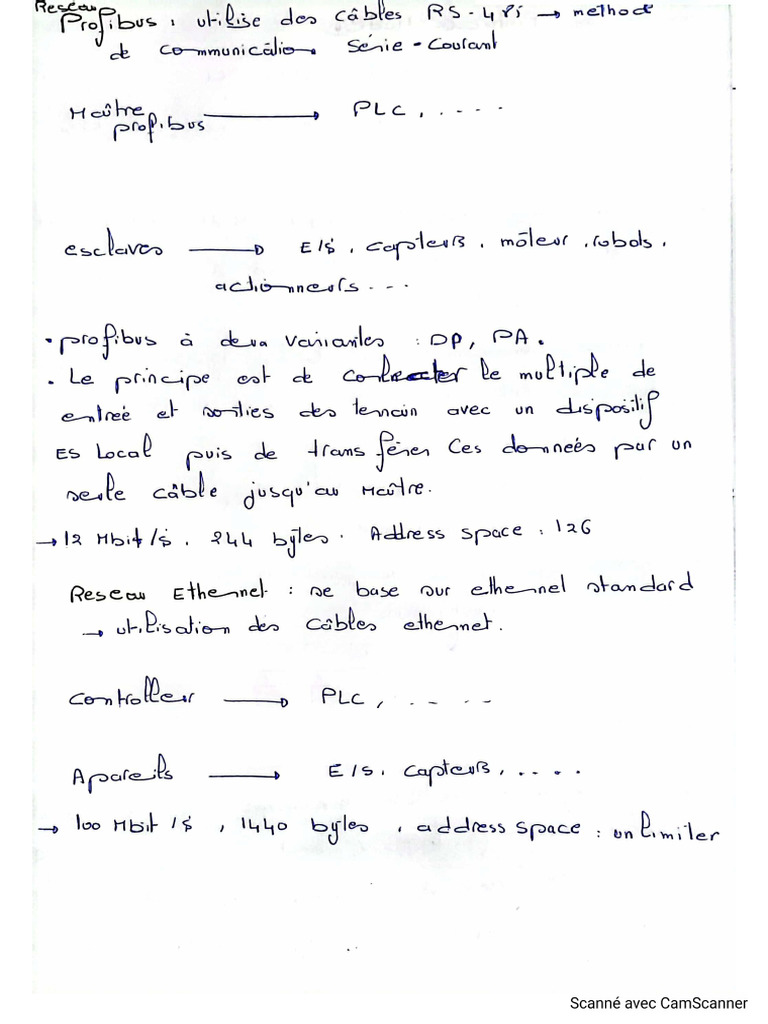 Reseau
Profibus : utilise des câbles RS-485 → methode
de communication Série - Courant
Maître → PLC, ....
profibus
esclaves → E/S, capteurs, môteur, robots,
actionneurs...
• profibus à deux variantes : DP, PA.
• Le principe est de conlecter le multiple de
entreé et sorties des terrain avec un dispositif
ES Local puis de transférer ces donneés par un
seule câble jusqu'au Maître.
→ 12 Mbit/s, 244 bytes. Address space : 126
Reseau Ethernet : se base sur ethernet standard
→ utilisation des câbles ethernet.
Controlleur → PLC, .....
Apareils → E/S, capteurs, ....
→ 100 Mbit/s, 1440 bytes, address space : unlimiter
Scanné avec CamScanner